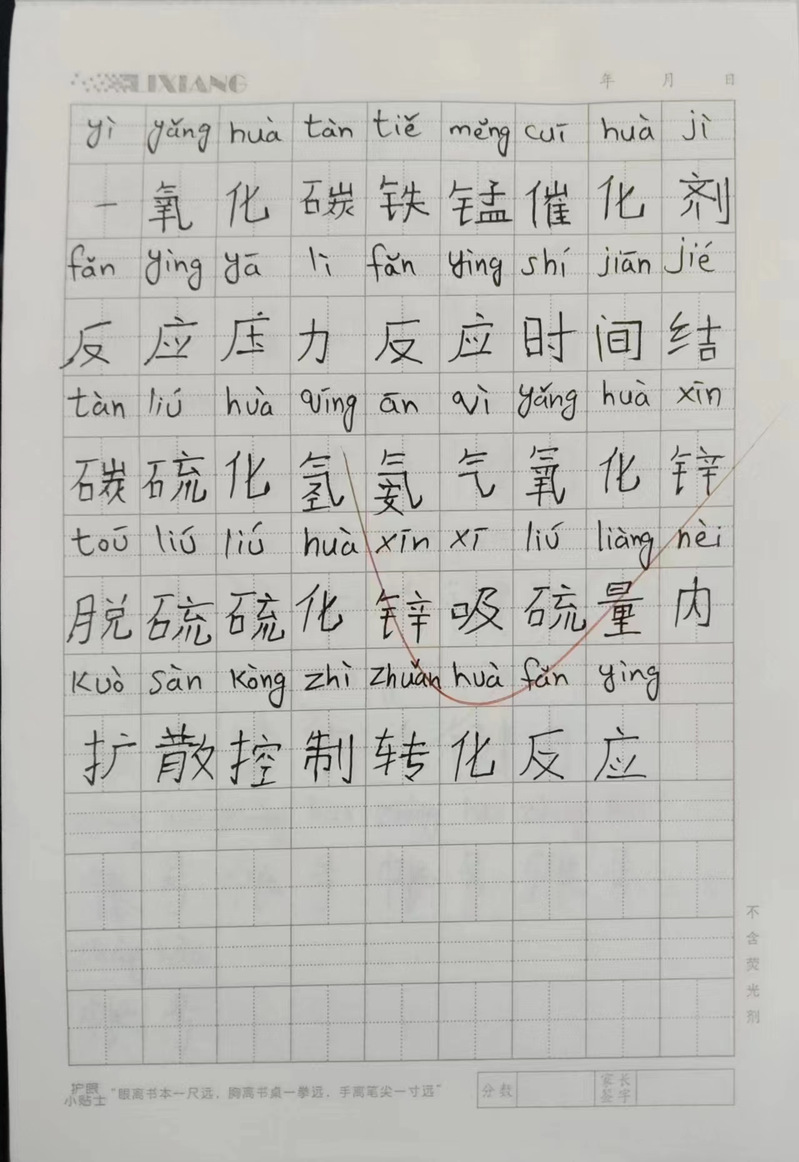 LIXIANG
年 月 日
yì yǎng huà tàn tiě měng cuī huà jì
一氧化碳铁锰催化剂
fǎn yìng yā lì fǎn yìng shí jiān jié
反应压力反应时间结
tàn liú huà qīng ān qì yǎng huà xīn
碳硫化氢氨气氧化锌
toū liú liú huà xīn xī liú liàng nèi
脱硫硫化锌吸硫量内
kuò sàn kòng zhì zhuǎn huà fǎn yìng
扩散控制转化反应
不含荧光剂
护眼小贴士 "眼离书本一尺远，胸离书桌一拳远，手离笔尖一寸远"
分数 家长签字